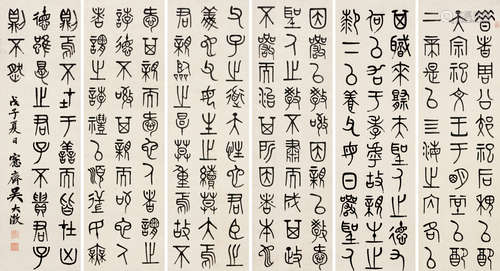 昔者周公郊祀后稷以配
天宗祀文王于明堂以配
上帝是以四海之内各以
其職來祭夫聖人之德又
何以加于孝乎故親生之
膝下以養父母日嚴聖人
因嚴以教敬因親以教愛
聖人之教不肅而成其政
不嚴而治其所因者本也
父子之道天性也君臣之
義也父母生之續莫大焉
君親臨之厚莫重焉故不
愛其親而愛他人者謂之
誖德不敬其親而敬他人
者謂之誖禮以順逆民無
則焉不在于善而皆在凶
德雖得之君子不貴君子
則不然
戊子夏日 愙齋吳大澂